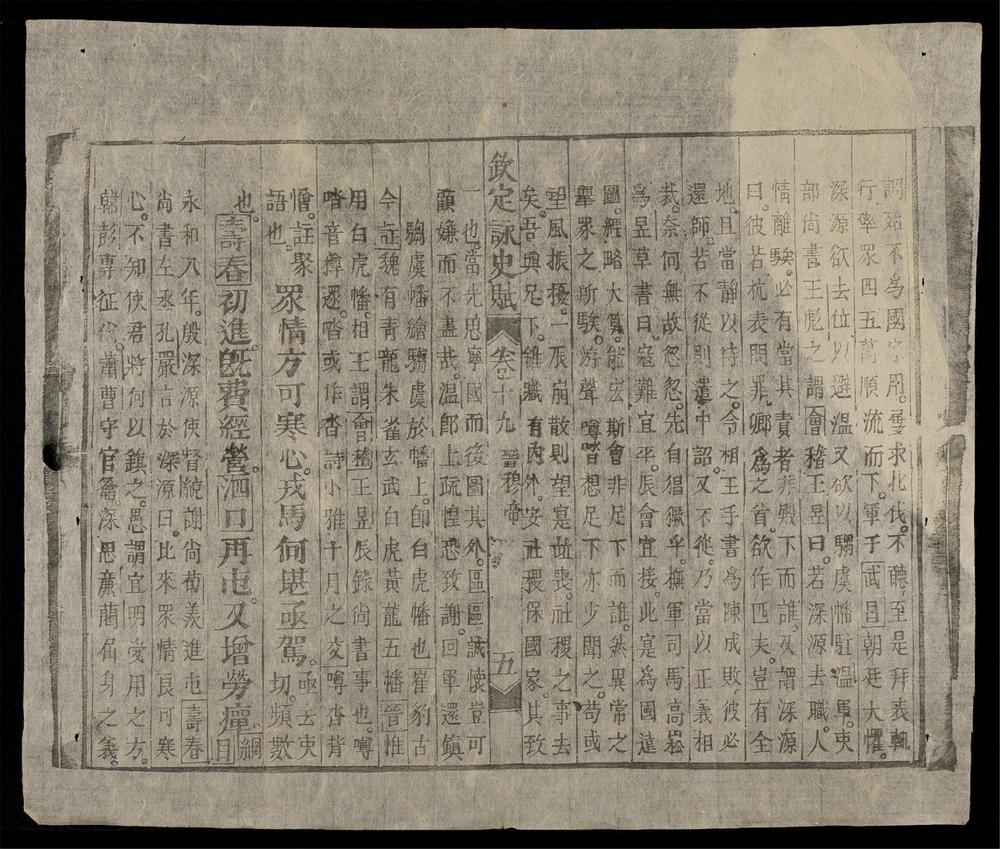 謂始不爲國之用。屢求北伐。不聽。至是拜表輒
行。率眾四五萬順流而下。軍于武昌。朝廷大懼。
深源欲去位以避溫。又欲以騶虞幡駐溫軍。吏
部尚書王彪之謂會稽王昱曰。若深源去職。人
情離駭。必有當其責者。非殿下而誰。又謂深源
曰。彼若抗表問罪。卿爲之首。欲作匹夫。豈有全
地。且當靜以待之。令相王手書爲陳成敗。彼必
還師。若不從則遣中詔。又不從。乃當以正義相
裁。奈何無故忽忽。先自猖獗乎。撫軍司馬高崧
爲昱草書曰。寇難宜平。辰會宜接。此寔爲國遠
圖。經略大算。能宏斯會。非足下而誰。然異常之
舉。眾之所駭。游聲噂㗳。想足下亦少聞之。苟或
望風振擾。一辰崩散。則望寔並喪。社稷之事去
矣。吾與足下。雖職有內外。安社稷保國家。其致
欽定詠史賦 卷十九 晉穆帝 五
一也。當先思寧國而後圖其外。區區誠懷。豈可
顧嫌而不盡哉。溫卽上疏惶恐致謝。回軍還鎮
騶虞幡繪騶虞於幡上。卽白虎幡也。崔豹古
今註魏有青龍朱雀玄武白虎黃龍五幡。晉惟
用白虎幡。相王謂會稽王昱。辰錄尚書事也。噂
沓音撙遝。沓或作沓。詩小雅十月之交噂沓背
憎。註聚
語也。眾情方可寒心。戎馬何堪亟駕。亟去吏切。頻數
也。壽春初進。旣費經營。泗口再屯。又增勞癉。綱目
永和八年。殷深源使督統謝尚荀羨進屯壽春
尚書左丞孔嚴言於深源曰。比來眾情良可寒
心。不知使君將何以鎮之。愚謂宜明受用之方。
韓彭專征伐。蕭曹守官籥。深思廉藺屈身之義。